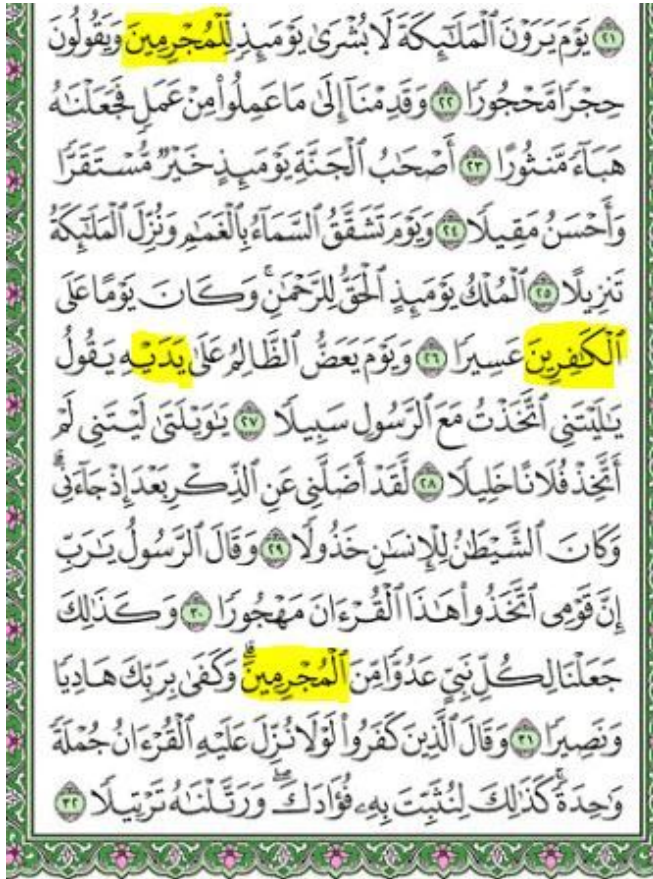 ٢١ يَوْمَ يَرَوْنَ ٱلْمَلَٰٓئِكَةَ لَا بُشْرَىٰ يَوْمَئِذٍ لِّلْمُجْرِمِينَ وَيَقُولُونَ
حِجْرًا مَّحْجُورًا ٢٢ وَقَدِمْنَآ إِلَىٰ مَا عَمِلُوا۟ مِنْ عَمَلٍ فَجَعَلْنَٰهُ
هَبَآءً مَّنثُورًا ٢٣ أَصْحَٰبُ ٱلْجَنَّةِ يَوْمَئِذٍ خَيْرٌ مُّسْتَقَرًّا
وَأَحْسَنُ مَقِيلًا ٢٤ وَيَوْمَ تَشَقَّقُ ٱلسَّمَآءُ بِٱلْغَمَٰمِ وَنُزِّلَ ٱلْمَلَٰٓئِكَةُ
تَنزِيلًا ٢٥ ٱلْمُلْكُ يَوْمَئِذٍ ٱلْحَقُّ لِلرَّحْمَٰنِ ۚ وَكَانَ يَوْمًا عَلَى
ٱلْكَٰفِرِينَ عَسِيرًا ٢٦ وَيَوْمَ يَعَضُّ ٱلظَّالِمُ عَلَىٰ يَدَيْهِ يَقُولُ
يَٰلَيْتَنِى ٱتَّخَذْتُ مَعَ ٱلرَّسُولِ سَبِيلًا ٢٧ يَٰوَيْلَتَىٰ لَيْتَنِى لَمْ
أَتَّخِذْ فُلَانًا خَلِيلًا ٢٨ لَّقَدْ أَضَلَّنِى عَنِ ٱلذِّكْرِ بَعْدَ إِذْ جَآءَنِى ۗ
وَكَانَ ٱلشَّيْطَٰنُ لِلْإِنسَٰنِ خَذُولًا ٢٩ وَقَالَ ٱلرَّسُولُ يَٰرَبِّ
إِنَّ قَوْمِى ٱتَّخَذُوا۟ هَٰذَا ٱلْقُرْءَانَ مَهْجُورًا ٣٠ وَكَذَٰلِكَ
جَعَلْنَا لِكُلِّ نَبِىٍّ عَدُوًّا مِّنَ ٱلْمُجْرِمِينَ ۗ وَكَفَىٰ بِرَبِّكَ هَادِيًا
وَنَصِيرًا ٣١ وَقَالَ ٱلَّذِينَ كَفَرُوا۟ لَوْلَا نُزِّلَ عَلَيْهِ ٱلْقُرْءَانُ جُمْلَةً
وَٰحِدَةً ۚ كَذَٰلِكَ لِنُثَبِّتَ بِهِۦ فُؤَادَكَ ۖ وَرَتَّلْنَٰهُ تَرْتِيلًا ٣٢